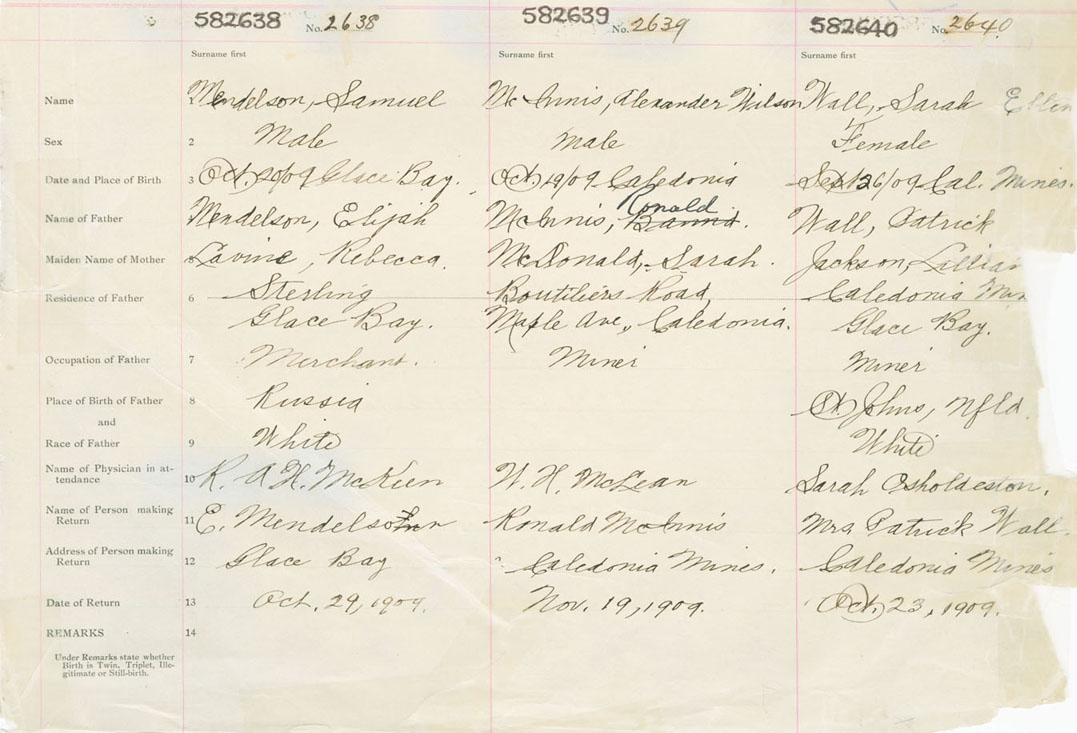 582638 No. 2638 582639 No. 2639 582640 No. 2640
Surname first Surname first Surname first
Name Mendelson, Samuel McInnis, Alexander Wilson Wall, Sarah Ellen
Sex 2 Male Male Female
Date and Place of Birth 3 Oct. 20/09 Glace Bay. Oct 19/09 Caledonia Sept 26/09 Cal. Mines.
Ronald
Name of Father Mendelson, Elijah McInnis, Wall, Patrick
Maiden Name of Mother Lavine, Rebecca. McDonald, Sarah. Jackson, Lillian
Residence of Father 6 Sterling Boutiliers Road, Caledonia
Glace Bay. Maple Ave., Caledonia. Glace Bay.
Occupation of Father 7 Merchant. Miner Miner
Place of Birth of Father 8 Russia St. Johns, Nfld.
and
Race of Father 9 White White
Name of Physician in at-
tendance 10 R. A. H. McKeen W. H. McLean Sarah
Name of Person making
Return 11 E. Mendelson Ronald McInnis Mrs Patrick Wall.
Address of Person making
Return 12 Glace Bay Caledonia Mines. Caledonia Mines
Date of Return 13 Oct. 29, 1909. Nov. 19, 1909. Oct. 23, 1909.
REMARKS 14
Under Remarks state whether
Birth is Twin, Triplet, Ille-
gitimate or Still-birth.